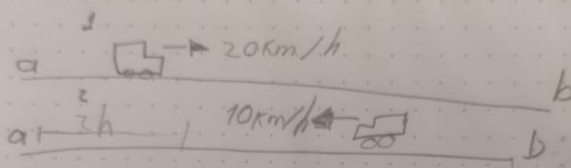 1
20Km/h
a b
2
a 3h 10Km/h b